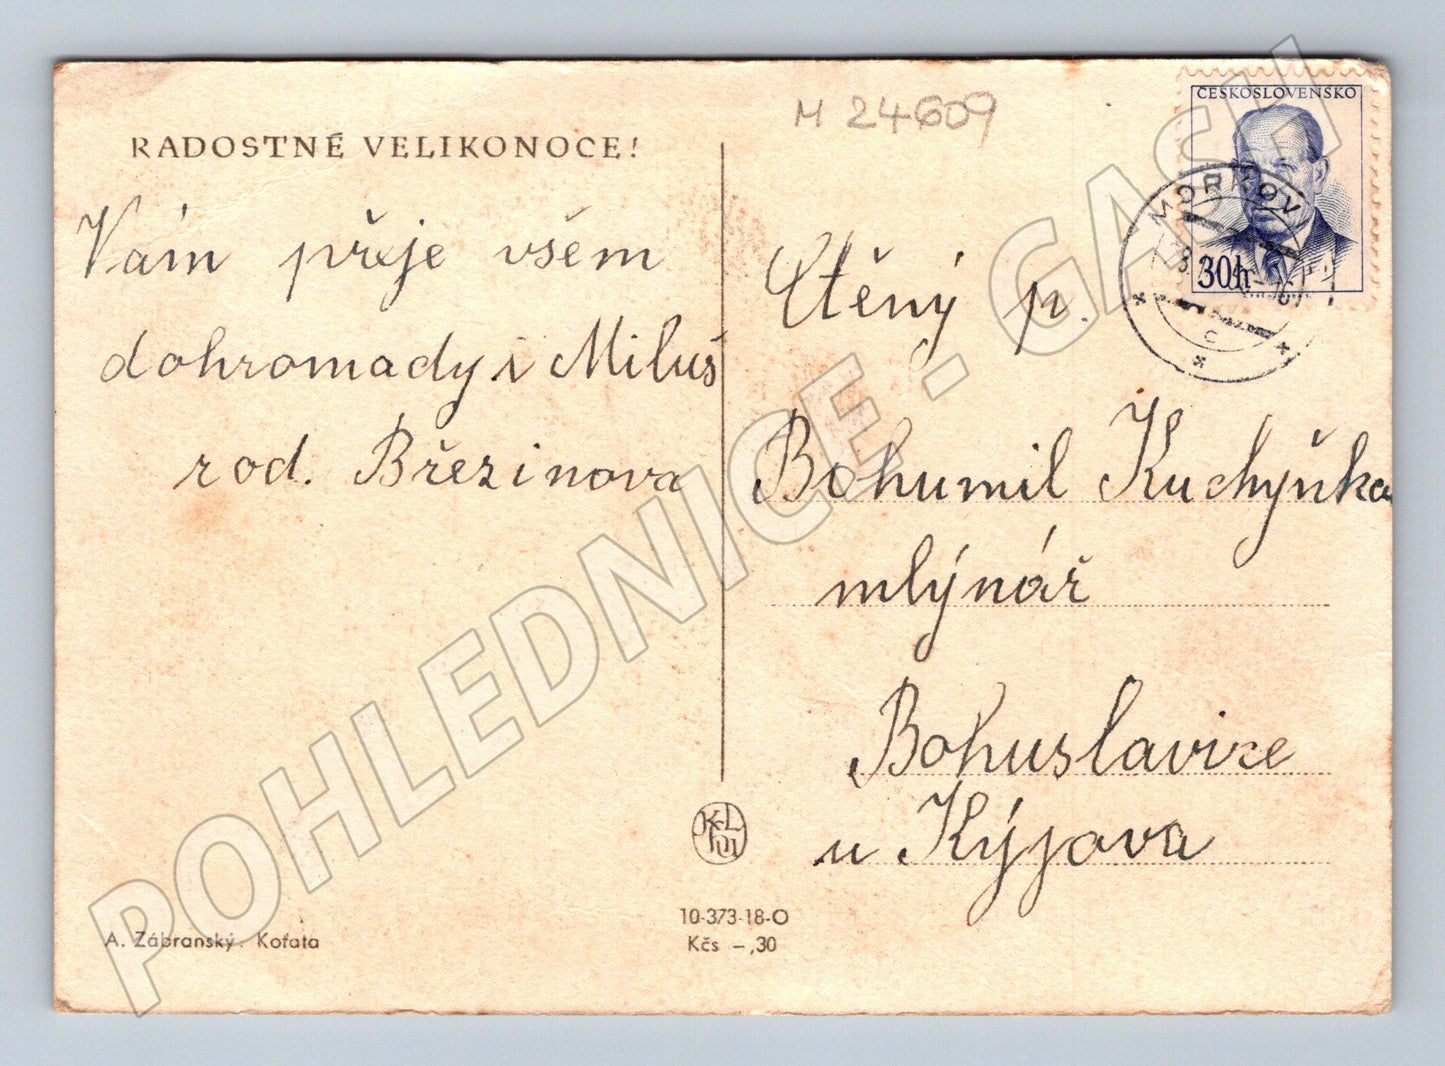 M 24609
RADOSTNÉ VELIKONOCE!
Vám přeje všem
dohromady i Miluš
rod. Březinova
A. Zábranský: Koťata
10-373-18-O
Kčs –,30
ČESKOSLOVENSKO
30h
MOŘKOV
C
Ctěný p.
Bohumil Kuchyňka
mlýnář
Bohuslavice
u Kýjova
POHLEDNICE - GASH